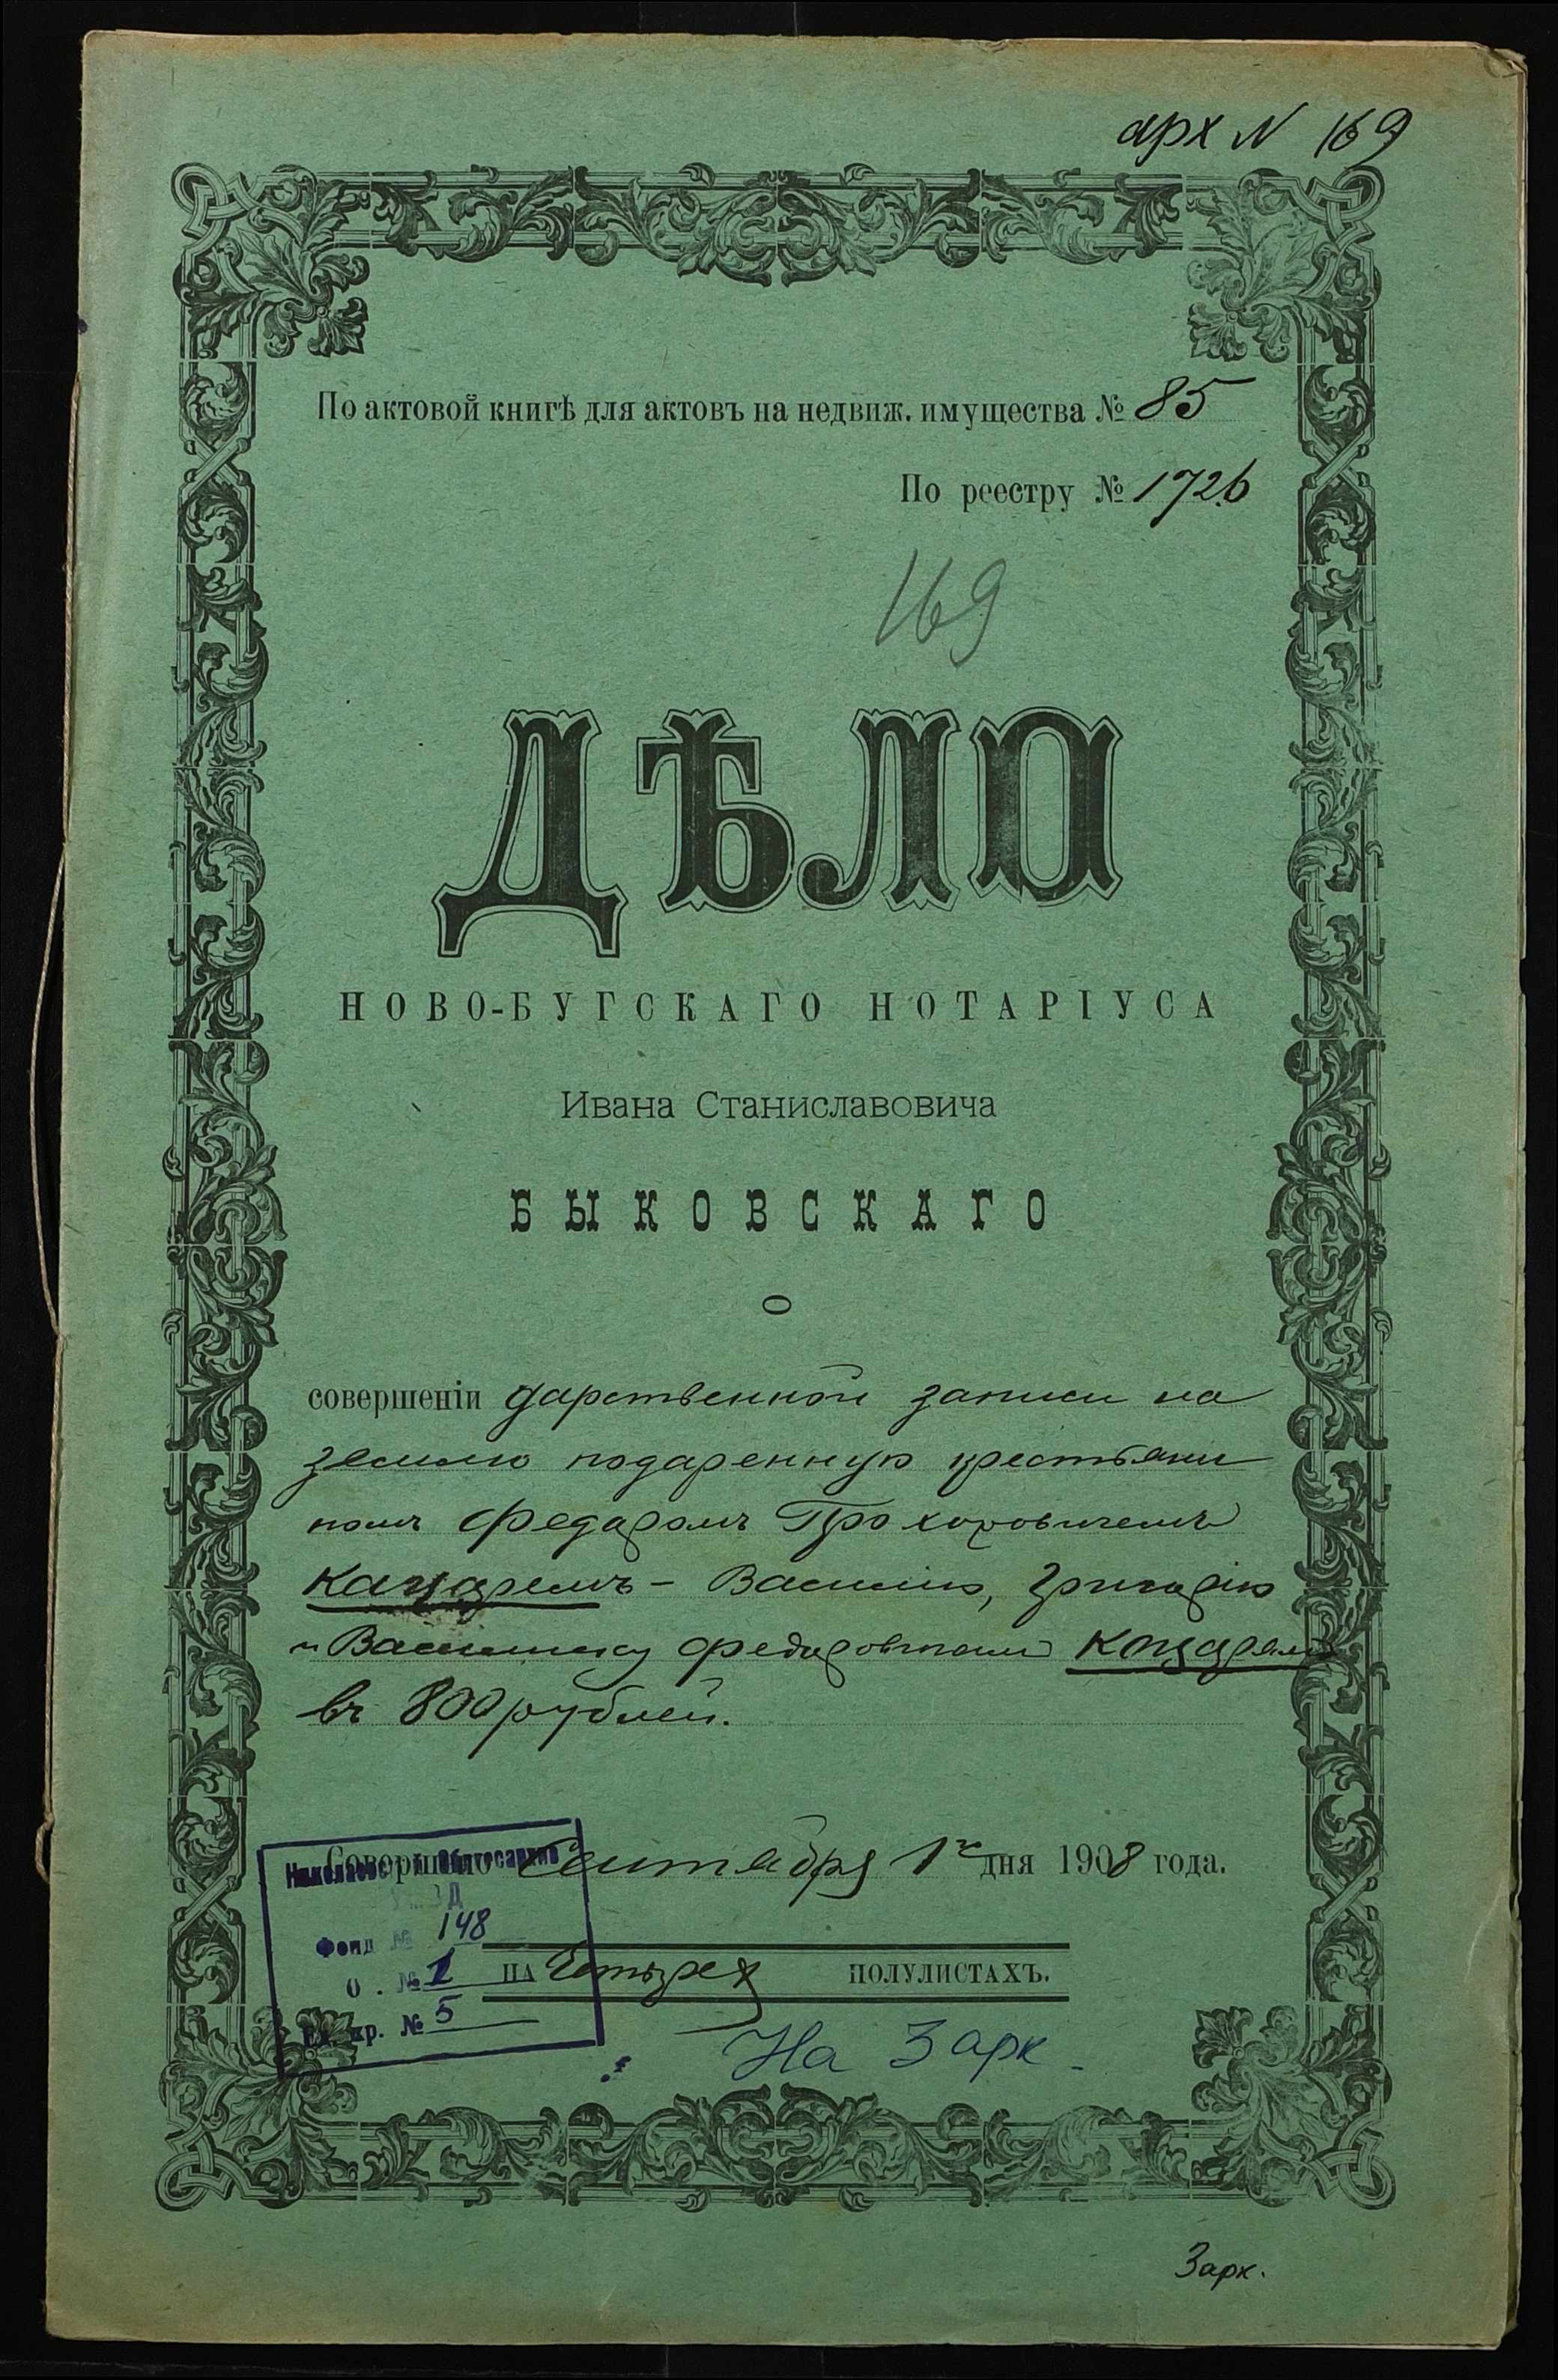 арх N 169
По актовой книгѣ для актовъ на недвиж. имущества № 85
По реестру № 1726
169
ДѢЛО
НОВО-БУГСКАГО НОТАРІУСА
Ивана Станиславовича
БЫКОВСКАГО
О
совершеніи дарственной записи на
землю подаренную крестьяни
номъ Федаромъ Прохоровичемъ
Кацаремъ - Василію, Григорію
и Федоровичам Кацарямъ
въ 800 рублей.
Совершено Сентября 1го дня 1908 года.
Николаевс Облгосархив
Фонд № 148
НА Четырех ПОЛУЛИСТАХЪ.
О . № 1
Ед. хр. № 5
На 3 арк.
3 арк.